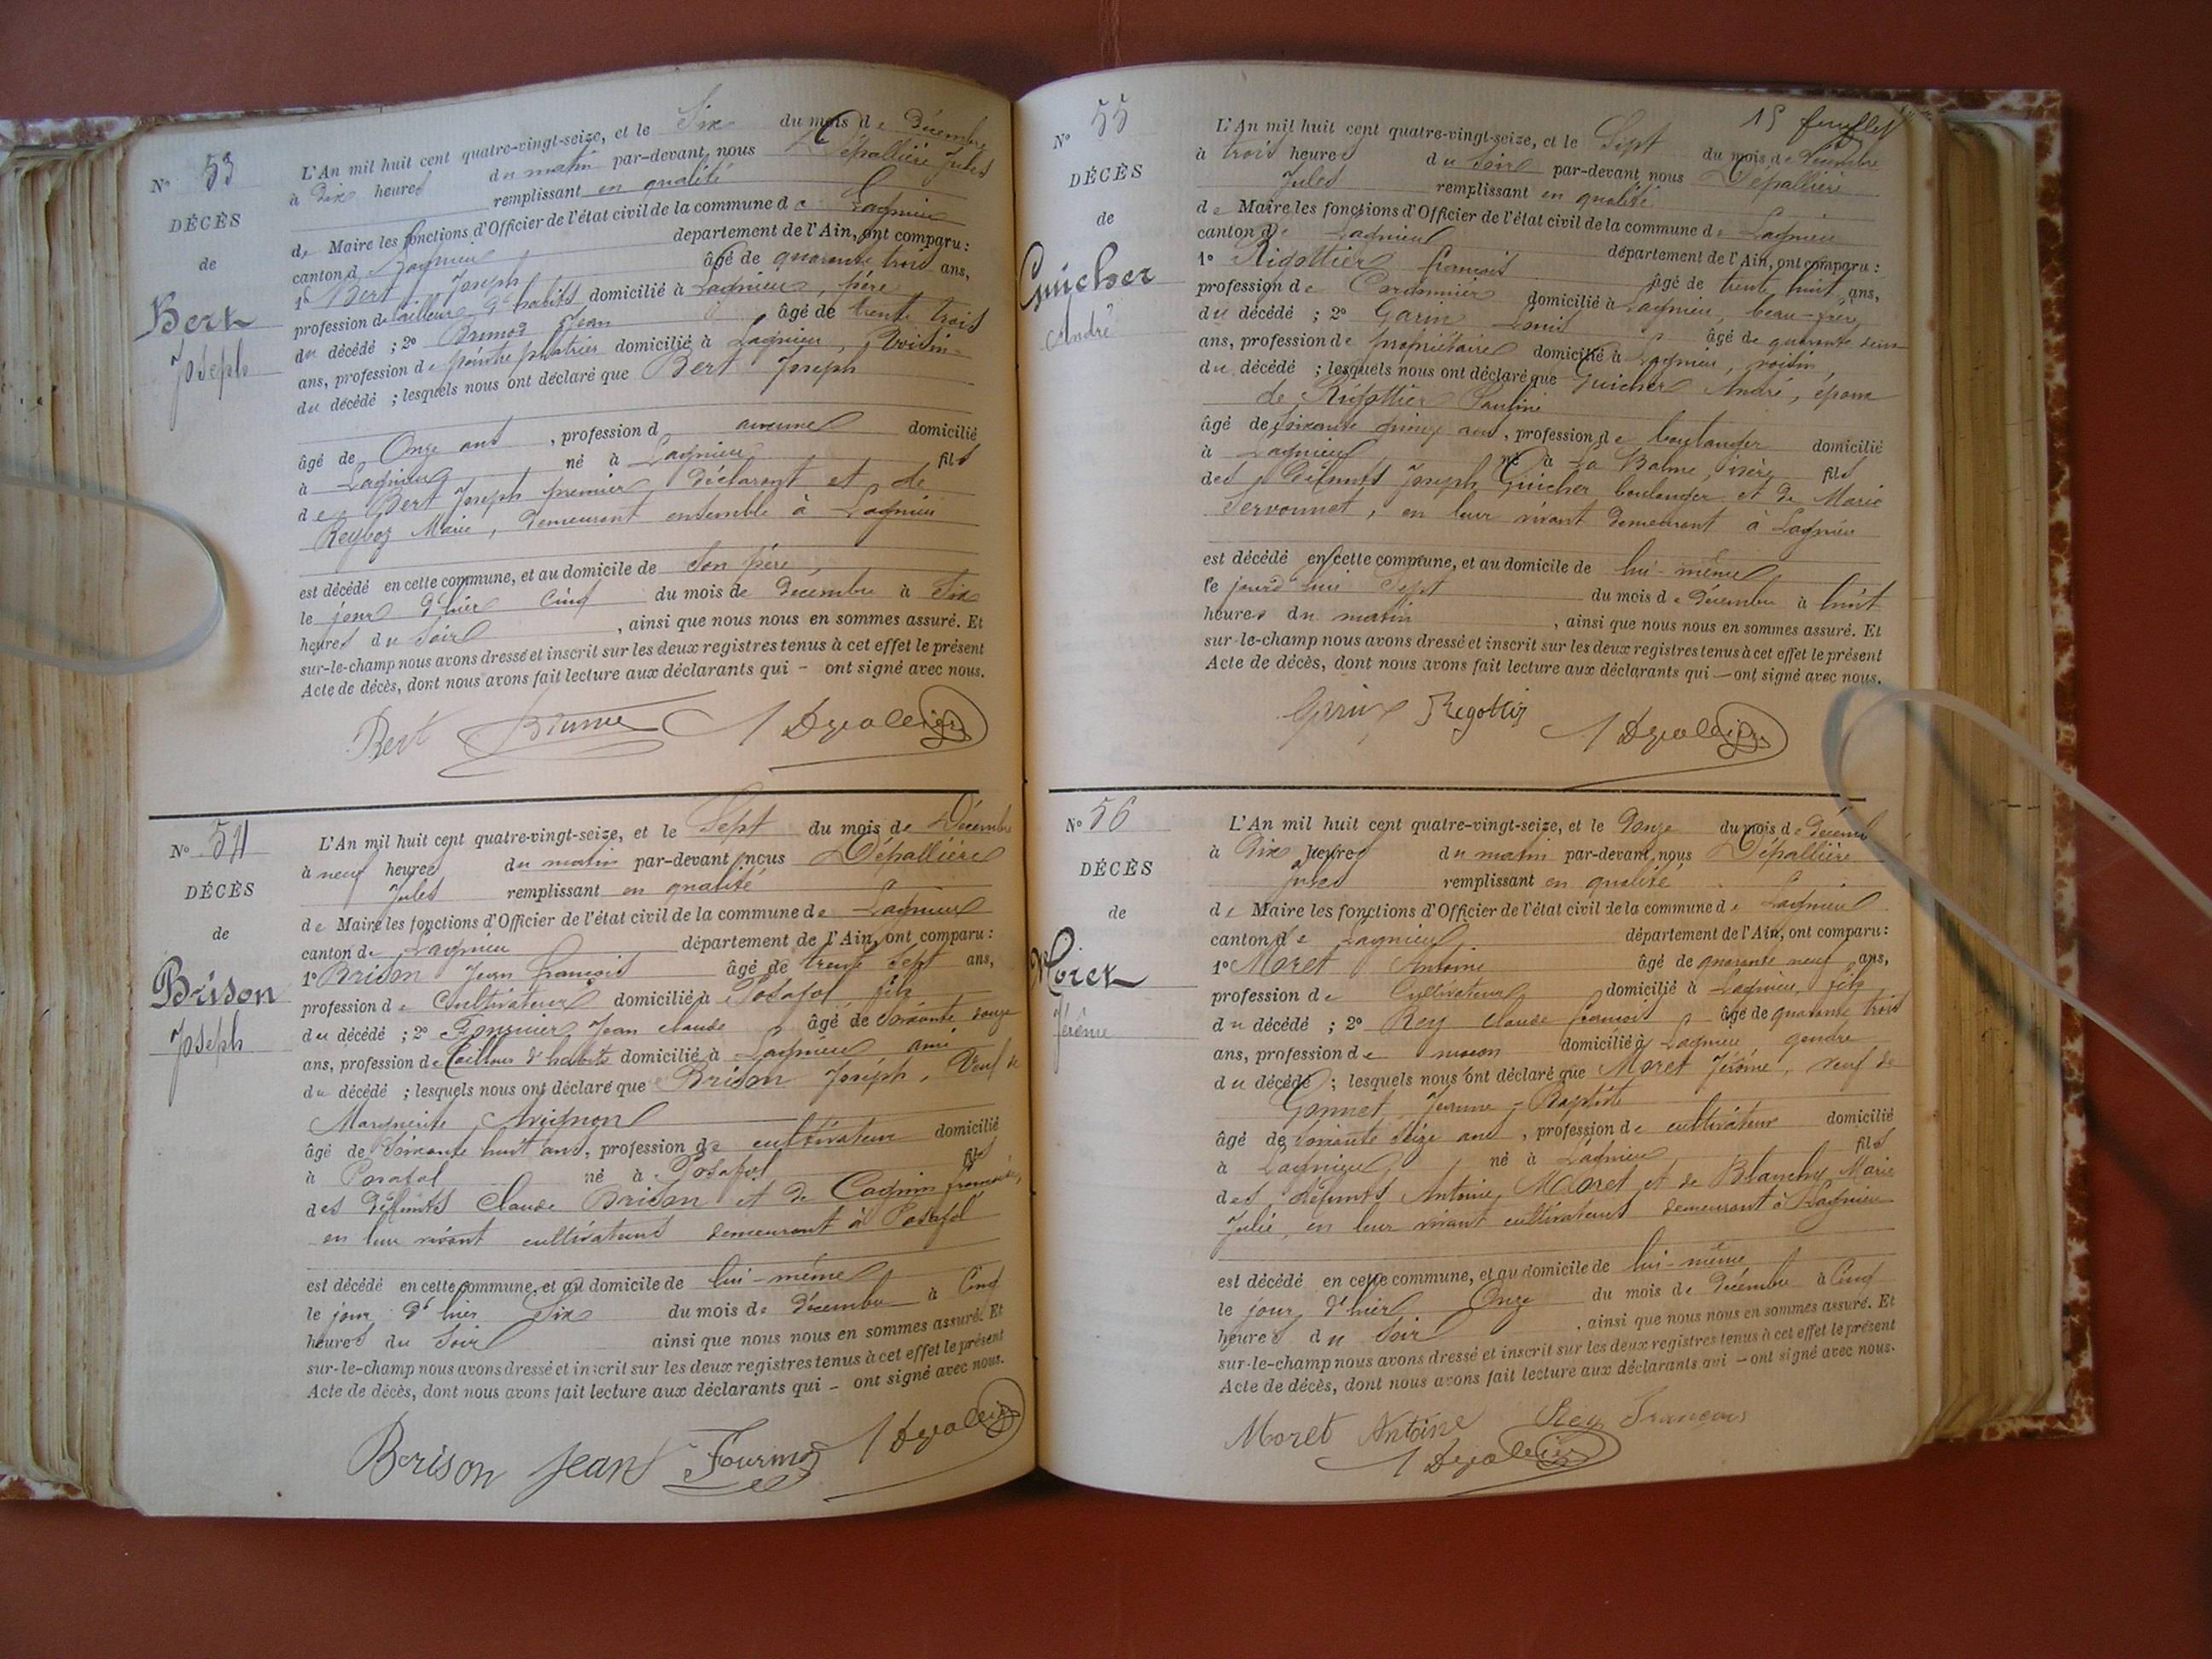 N° 53
DÉCÈS
de
Bert
Joseph
L'An mil huit cent quatre-vingt-seize, et le Six du mois de Décembre
à Dix heures du matin par-devant nous Dépallière Jules
remplissant en qualité
de Maire les fonctions d'Officier de l'état civil de la commune de Lagnieu
canton d Lagnieu département de l'Ain, ont comparu :
1° Bert Joseph âgé de quarante trois ans,
profession de tailleur d'habits domicilié à Lagnieu, père
du décédé ; 2° Jean âgé de trente trois
ans, profession de peintre platrier domicilié à Lagnieu, Voisin
du décédé ; lesquels nous ont déclaré que Bert Joseph
âgé de Onze ans, profession d aucune domicilié
à Lagnieu né à Lagnieu fils
de Bert Joseph premier déclarant et de
Reyboz Marie, demeurant ensemble à Lagnieu
est décédé en cette commune, et au domicile de son père,
le jour d'hier Cinq du mois de Décembre à Six
heures du Soir, ainsi que nous nous en sommes assuré. Et
sur-le-champ nous avons dressé et inscrit sur les deux registres tenus à cet effet le présent
Acte de décès, dont nous avons fait lecture aux déclarants qui - ont signé avec nous.
Bert
N° 54
DÉCÈS
de
Brison
Joseph
L'An mil huit cent quatre-vingt-seize, et le Sept du mois de Décembre
à neuf heures du matin par-devant nous Dépallière
Jules remplissant en qualité
de Maire les fonctions d'Officier de l'état civil de la commune de Lagnieu
canton de Lagnieu département de l'Ain, ont comparu :
1° Brison Jean François âgé de trente Sept ans,
profession de Cultivateur domicilié à Posafol, fils
du décédé ; 2° Jean Claude âgé de soixante douze
ans, profession de tailleur d'habits domicilié à Lagnieu ami
du décédé ; lesquels nous ont déclaré que Brison Joseph, Veuf de
Marguerite Avignon
âgé de Soixante huit ans, profession de cultivateur domicilié
à Posafol né à Posafol fils
des défunts Claude Brison et de Cagnin
en leur vivant cultivateurs demeurant à Posafol
est décédé en cette commune, et au domicile de lui-même
le jour d'hier Six du mois de Décembre à Cinq
heures du Soir ainsi que nous nous en sommes assuré. Et
sur-le-champ nous avons dressé et inscrit sur les deux registres tenus à cet effet le présent
Acte de décès, dont nous avons fait lecture aux déclarants qui - ont signé avec nous.
Brison Jean
15 feuillet
N° 55
DÉCÈS
de
Guicher
André
L'An mil huit cent quatre-vingt-seize, et le Sept du mois de Décembre
à trois heures du Soir par-devant nous Dépallière
Jules remplissant en qualité
de Maire les fonctions d'Officier de l'état civil de la commune de Lagnieu
canton de Lagnieu département de l'Ain, ont comparu :
1° Rigottier François âgé de trente huit ans,
profession de Cordonnier domicilié à Lagnieu, beau-frère
du décédé ; 2° Garin Louis âgé de quarante deux
ans, profession de propriétaire domicilié à Lagnieu, voisin,
du décédé ; lesquels nous ont déclaré que Guicher André, époux
de Rigottier Pauline
âgé de soixante quinze ans, profession de boulanger domicilié
à Lagnieu né à La Balme, isère fils
des défunts Joseph Guicher boulanger et de Marie
Servonnet, en leur vivant demeurant à Lagnieu
est décédé en cette commune, et au domicile de lui-même
le jourd'hui Sept du mois de Décembre à huit
heures du matin, ainsi que nous nous en sommes assuré. Et
sur-le-champ nous avons dressé et inscrit sur les deux registres tenus à cet effet le présent
Acte de décès, dont nous avons fait lecture aux déclarants qui - ont signé avec nous.
N° 56
DÉCÈS
de
Moret
Jérôme
L'An mil huit cent quatre-vingt-seize, et le Douze du mois de Décembre
à Dix heures du matin par-devant nous Dépallière
Jules remplissant en qualité
de Maire les fonctions d'Officier de l'état civil de la commune de Lagnieu
canton de Lagnieu département de l'Ain, ont comparu :
1° Moret Antoine âgé de quarante neuf ans,
profession de Cultivateur domicilié à Lagnieu, fils
du décédé ; 2° Rey Claude François âgé de quarante trois
ans, profession de maçon domicilié à Lagnieu gendre
du décédé ; lesquels nous ont déclaré que Moret Jérôme, veuf de
Gonnet Jeanne-Baptiste
âgé de soixante Seize ans, profession de cultivateur domicilié
à Lagnieu né à Lagnieu fils
des défunts Antoine Moret et de Blanchy Marie
Julie, en leur vivant cultivateurs demeurant à Lagnieu
est décédé en cette commune, et au domicile de lui-même
le jour d'hier Onze du mois de Décembre à Cinq
heures du Soir, ainsi que nous nous en sommes assuré. Et
sur-le-champ nous avons dressé et inscrit sur les deux registres tenus à cet effet le présent
Acte de décès, dont nous avons fait lecture aux déclarants qui - ont signé avec nous.
Moret Antoine Rey François